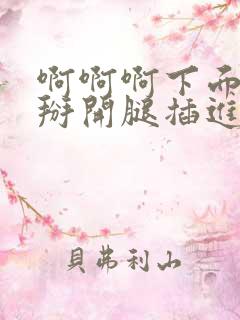 啊啊啊下面
掰開腿插進
貝弗利山